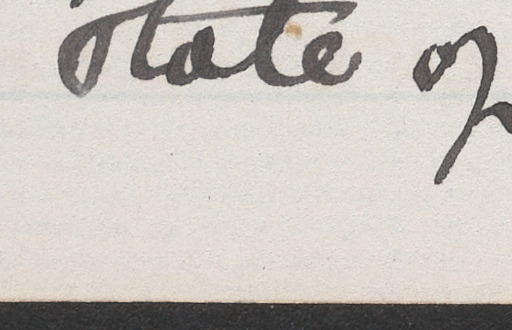 State of